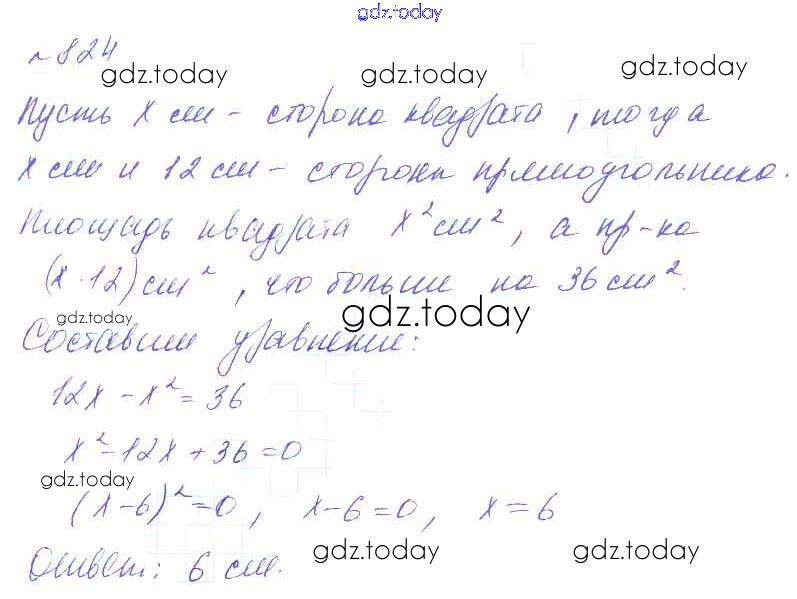 gdz.today
№824
gdz.today gdz.today gdz.today
Пусть x см – сторона квадрата, тогда
x см и 12 см – стороны прямоугольника.
Площадь квадрата x² см², а пр-ка
(x · 12) см², что больше на 36 см².
gdz.today gdz.today
Составим уравнение:
12x – x² = 36
x² – 12x + 36 = 0
gdz.today gdz.today
(x – 6)² = 0, x – 6 = 0, x = 6
gdz.today gdz.today
Ответ: 6 см.